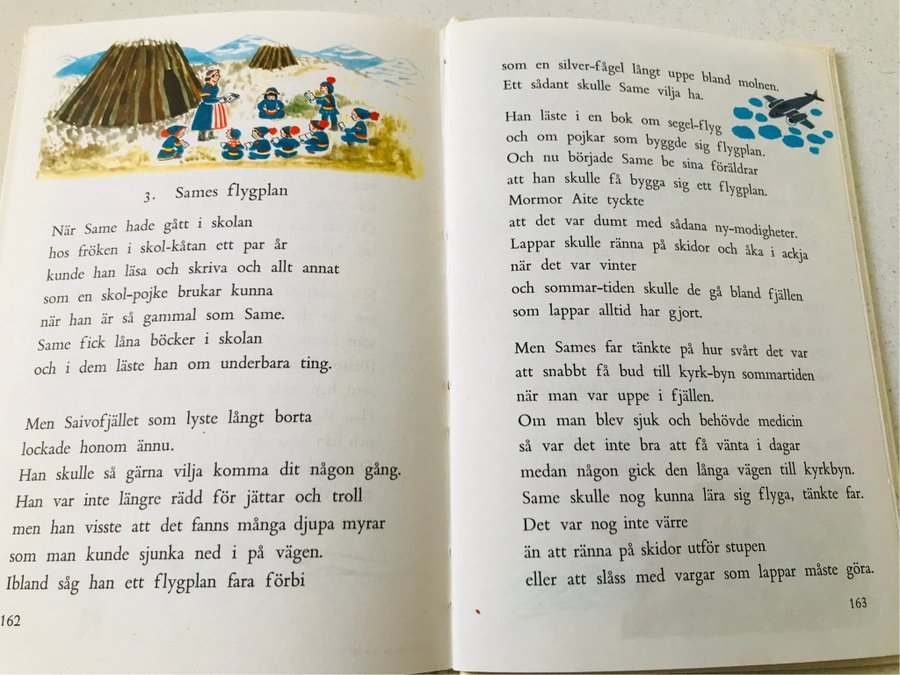 3. Sames flygplan
När Same hade gått i skolan
hos fröken i skol-kåtan ett par år
kunde han läsa och skriva och allt annat
som en skol-pojke brukar kunna
när han är så gammal som Same.
Same fick låna böcker i skolan
och i dem läste han om underbara ting.
Men Saivofjället som lyste långt borta
lockade honom ännu.
Han skulle så gärna vilja komma dit någon gång.
Han var inte längre rädd för jättar och troll
men han visste att det fanns många djupa myrar
som man kunde sjunka ned i på vägen.
Ibland såg han ett flygplan fara förbi
162
som en silver-fågel långt uppe bland molnen.
Ett sådant skulle Same vilja ha.
Han läste i en bok om segel-flyg
och om pojkar som byggde sig flygplan.
Och nu började Same be sina föräldrar
att han skulle få bygga sig ett flygplan.
Mormor Aite tyckte
att det var dumt med sådana ny-modigheter.
Lappar skulle ränna på skidor och åka i ackja
när det var vinter
och sommar-tiden skulle de gå bland fjällen
som lappar alltid har gjort.
Men Sames far tänkte på hur svårt det var
att snabbt få bud till kyrk-byn sommartiden
när man var uppe i fjällen.
Om man blev sjuk och behövde medicin
så var det inte bra att få vänta i dagar
medan någon gick den långa vägen till kyrkbyn.
Same skulle nog kunna lära sig flyga, tänkte far.
Det var nog inte värre
än att ränna på skidor utför stupen
eller att slåss med vargar som lappar måste göra.
163